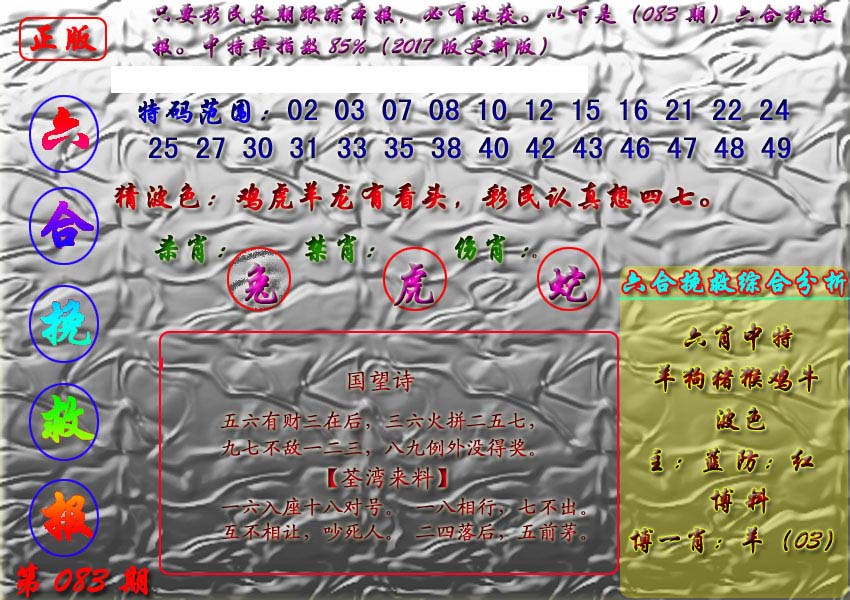 正版
只要彩民长期跟踪本报，必有收获。以下是（083期）六合挽救
报。中特率指数85%（2017版更新版）
六合挽救报
第083期
特码范围：02 03 07 08 10 12 15 16 21 22 24
25 27 30 31 33 35 38 40 42 43 46 47 48 49
猜波色：鸡虎羊龙有看头，彩民认真想四七。
杀肖：兔 禁肖：虎 伤肖：蛇
国望诗
五六有财三在后，三六火拼二五七，
九七不敌一二三，八九例外没得奖。
【荃湾来料】
一六入座十八对号。 一八相行，七不出。
互不相让，吵死人。 二四落后，五前茅。
六合挽救综合分析
六肖中特
羊狗猪猴鸡牛
波色
主：蓝防：红
博料
博一肖：羊（03）